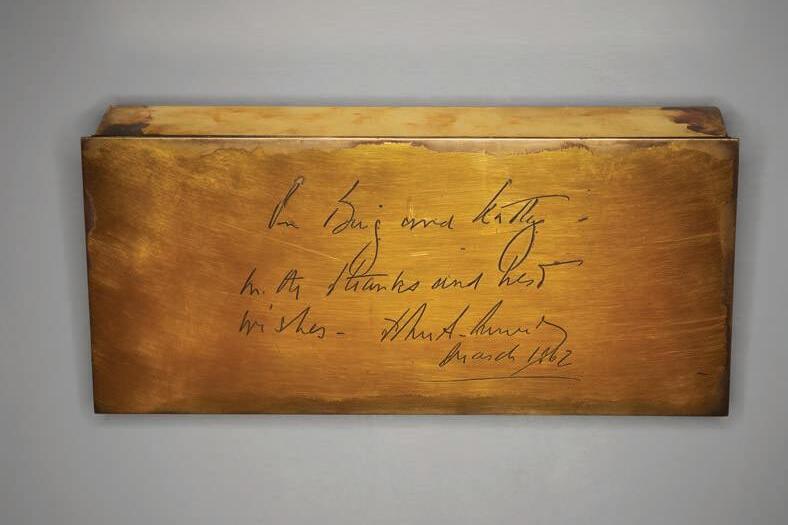 For Bing and Kathy -
with thanks and best
wishes - John F. Kennedy
March 1962